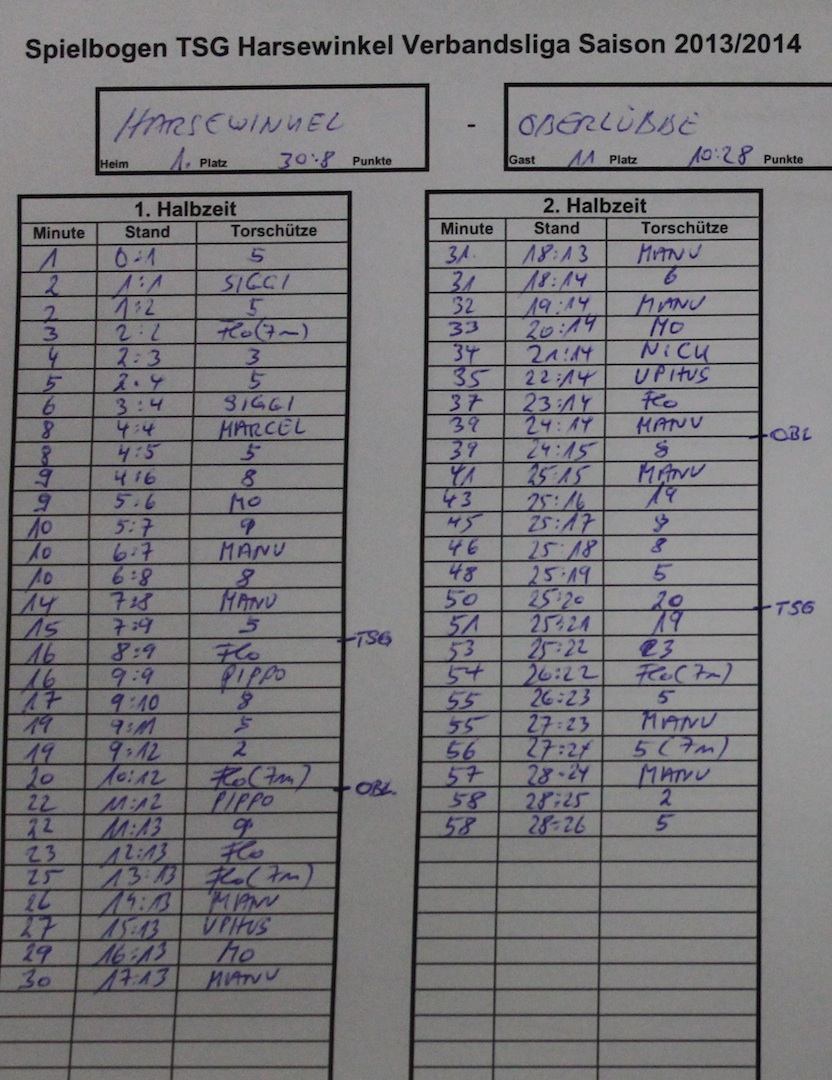 Spielbogen TSG Harsewinkel Verbandsliga Saison 2013/2014
HARSEWINKEL - OBERLÜBBE
Heim 1. Platz 30:8 Punkte Gast 11 Platz 10:28 Punkte
1. Halbzeit
Minute Stand Torschütze
1 0:1 5
2 1:1 SIGGI
2 1:2 5
3 2:2 Flo (7m)
4 2:3 3
5 2:4 5
6 3:4 SIGGI
8 4:4 MARCEL
8 4:5 5
9 4:6 8
9 5:6 MO
10 5:7 9
10 6:7 MANU
10 6:8 8
14 7:8 MANU
15 7:9 5
TSG
16 8:9 Flo
16 9:9 PIPPO
17 9:10 8
19 9:11 5
19 9:12 2
20 10:12 Flo (7m)
OBL
22 11:12 PIPPO
22 11:13 9
23 12:13 Flo
25 13:13 Flo (7m)
26 14:13 MANU
27 15:13 UPHUS
29 16:13 MO
30 17:13 MANU
2. Halbzeit
Minute Stand Torschütze
31. 18:13 MANU
31 18:14 6
32 19:14 MANU
33 20:14 MO
34 21:14 NICK
35 22:14 UPHUS
37 23:14 Flo
39 24:14 MANU
OBL
39 24:15 8
41 25:15 MANU
43 25:16 19
45 25:17
46 25:18 8
48 25:19 5
50 25:20 20
TSG
51 25:21 19
53 25:22 23
54 26:22 Flo (7m)
55 26:23 5
55 27:23 MANU
56 27:24 5 (7m)
57 28:24 MANU
58 28:25 2
58 28:26 5